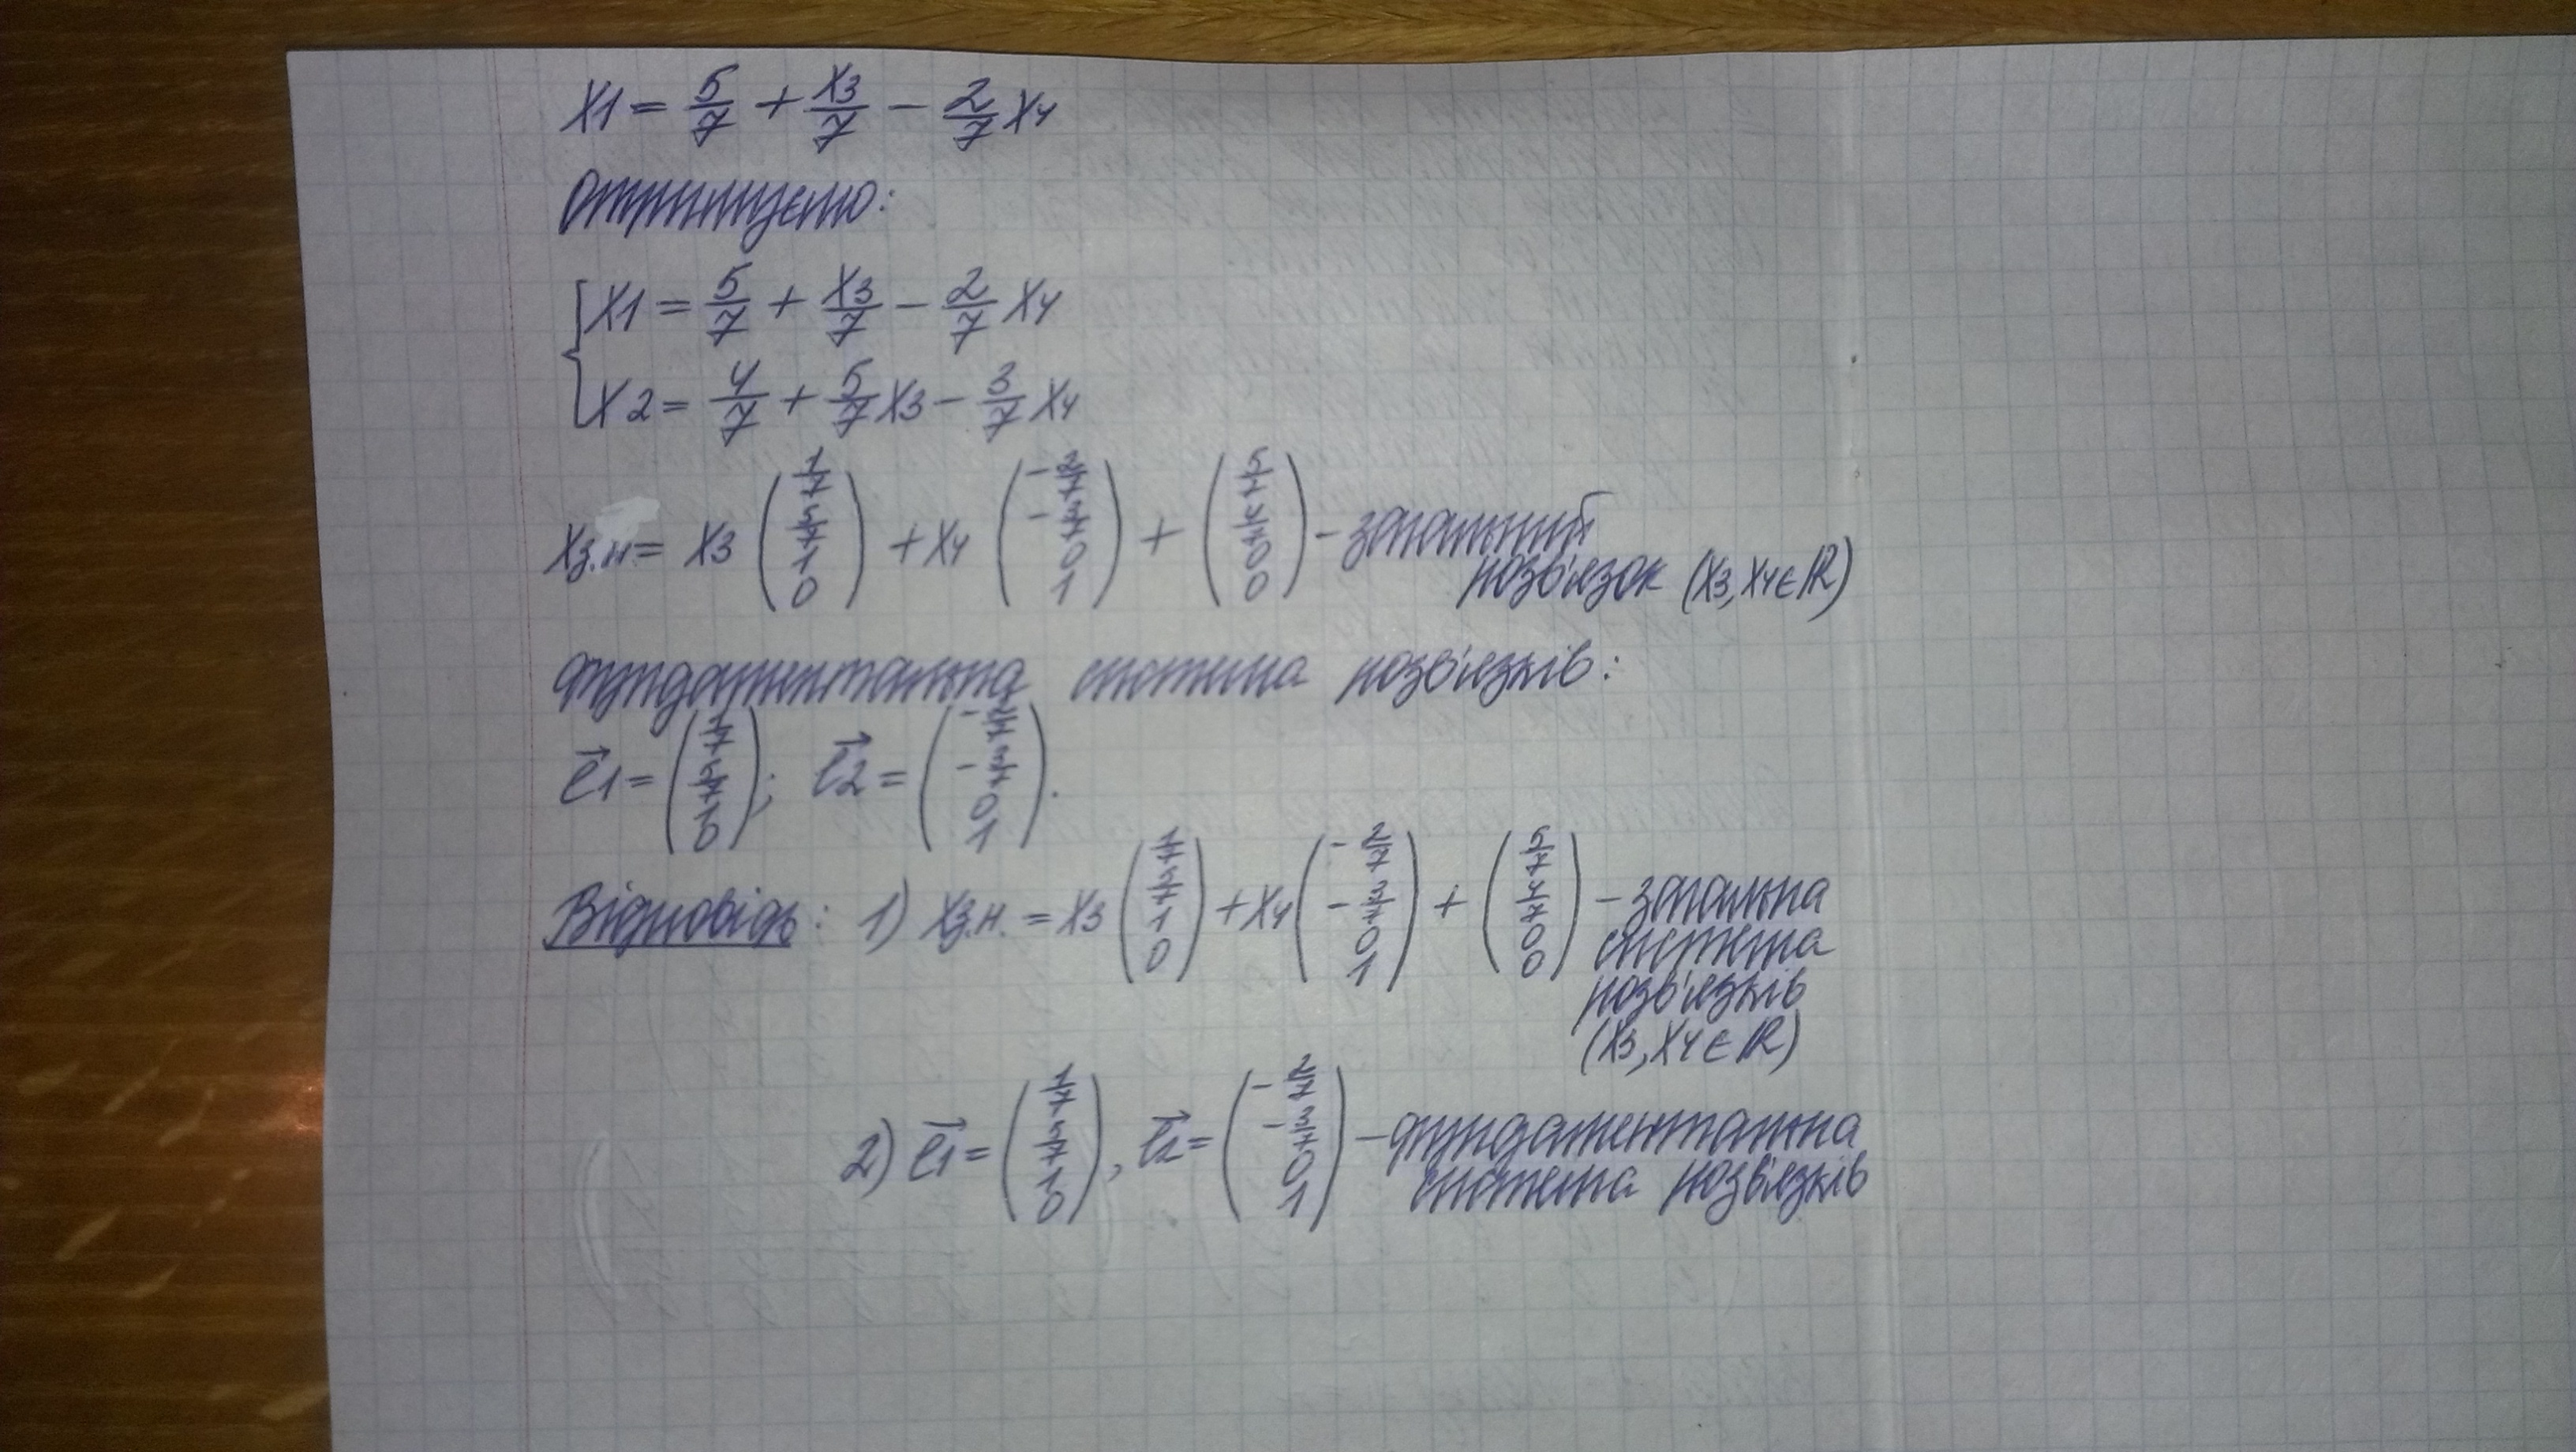 x1 = 5/7 + x3/7 - 2/7 x4
Отримуємо:
{ x1 = 5/7 + x3/7 - 2/7 x4
x2 = 4/7 + 5/7 x3 - 3/7 x4
xз.н = x3 (1/7 5/7 1 0) + x4 (-2/7 -3/7 0 1) + (5/7 4/7 0 0) - загальний
розв'язок (x3, x4 ∈ ℝ)
фундаментальна система розв'язків:
e⃗1 = (1/7 5/7 1 0); e⃗2 = (-2/7 -3/7 0 1).
Відповідь: 1) xз.н. = x3 (1/7 5/7 1 0) + x4 (-2/7 -3/7 0 1) + (5/7 4/7 0 0) - загальна
система
розв'язків
(x3, x4 ∈ ℝ)
2) e⃗1 = (1/7 5/7 1 0), e⃗2 = (-2/7 -3/7 0 1) - фундаментальна
система розв'язків